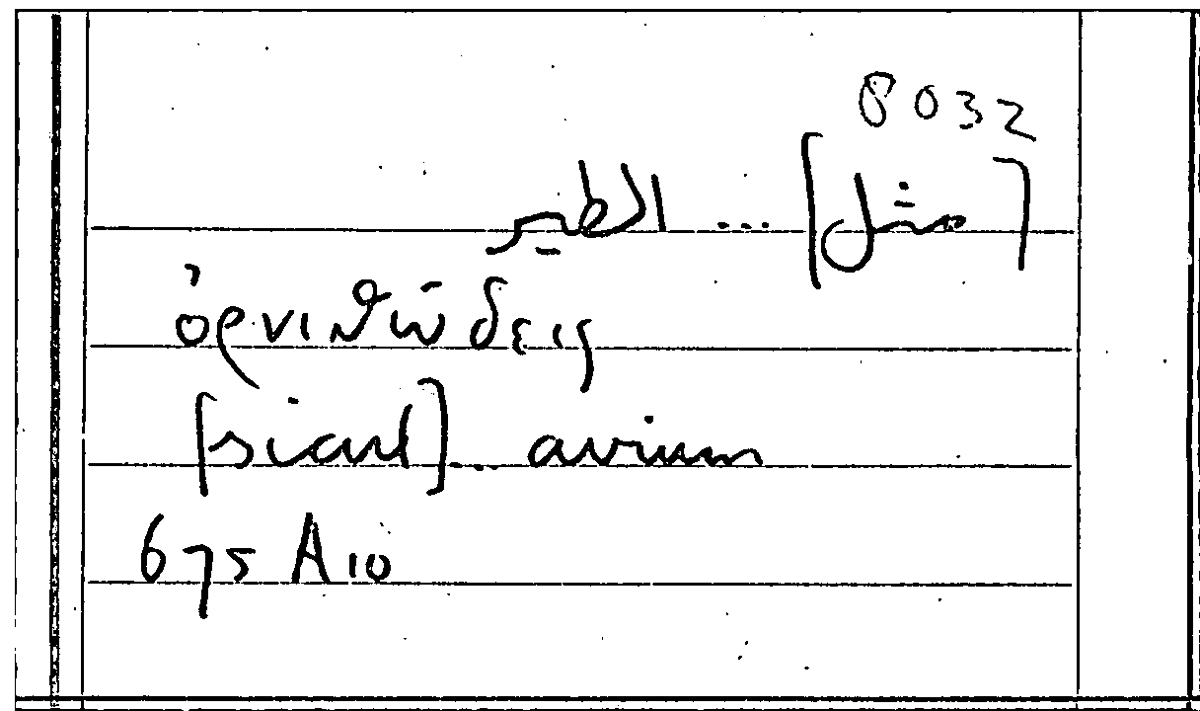 8032
[مثل] ... الطير
ὀρνιθώδεις
[sicut] ... avium
675 A 10